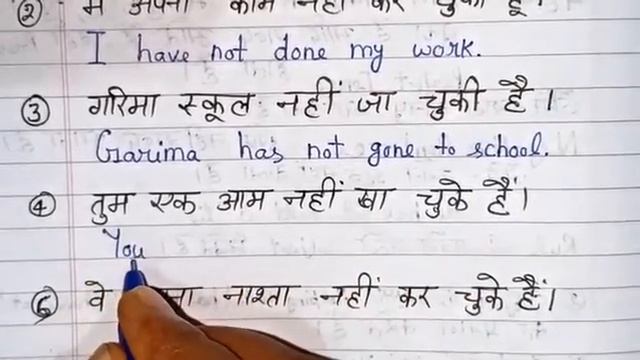 ② मैं अपना काम नहीं कर चुका हूँ।
I have not done my work.
③ गरिमा स्कूल नहीं जा चुकी है।
Garima has not gone to school.
④ तुम एक आम नहीं खा चुके हैं।
You
वे नाश्ता नहीं कर चुके हैं।